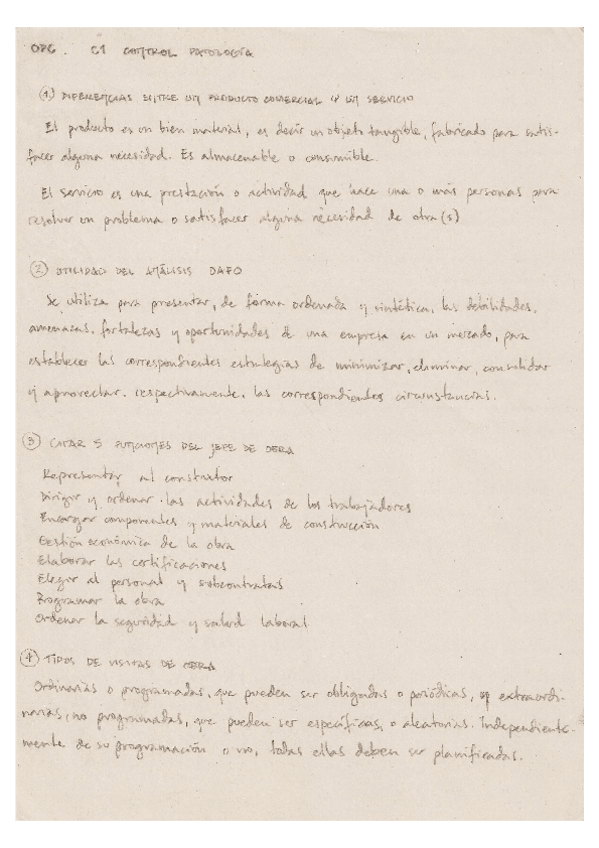 OPC. C1 CONTROL PATOLOGÍA
① DIFERENCIAS ENTRE UN PRODUCTO COMERCIAL Y UN SERVICIO
El producto es un bien material, es decir un objeto tangible, fabricado para satis-
facer alguna necesidad. Es almacenable o consumible.
El servicio es una prestación o actividad que hace una o más personas para
resolver un problema o satisfacer alguna necesidad de otra(s)
② UTILIDAD DEL ANÁLISIS DAFO
Se utiliza para presentar, de forma ordenada y sintética, las debilidades,
amenazas, fortalezas y oportunidades de una empresa en un mercado, para
establecer las correspondientes estrategias de minimizar, eliminar, consolidar
y aprovechar, respectivamente, las correspondientes circunstancias.
③ CITAR 5 FUNCIONES DEL JEFE DE OBRA
Representar al constructor
Dirigir y ordenar las actividades de los trabajadores
Encargar componentes y materiales de construcción
Gestión económica de la obra
Elaborar las certificaciones
Elegir al personal y subcontratas
Programar la obra
Ordenar la seguridad y salud laboral
④ TIPOS DE VISITAS DE OBRA
Ordinarias o programadas, que pueden ser obligadas o periódicas, y extraordi-
narias, no programadas, que pueden ser específicas, o aleatorias. Independiente-
mente de su programación o no, todas ellas deben ser planificadas.